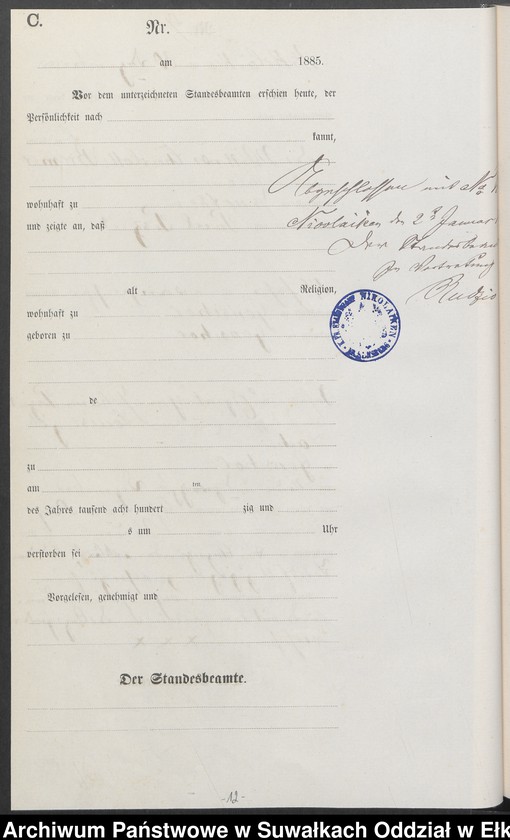 C.
Nr.
am 1885.
Vor dem unterzeichneten Standesbeamten erschien heute, der
Persönlichkeit nach
kannt,
Abgeschlossen mit No
wohnhaft zu
Nicolaiken den 2 Januar
und zeigte an, daß
Der Standesbeam
In Vertretung
alt Religion,
wohnhaft zu
NIKOLAIKEN
geboren zu
de
zu
am im
des Jahres tausend acht hundert zig und
s um Uhr
verstorben sei
Vorgelesen, genehmigt und
Der Standesbeamte.
-12-
Archiwum Państwowe w Suwałkach Oddział w Ełk